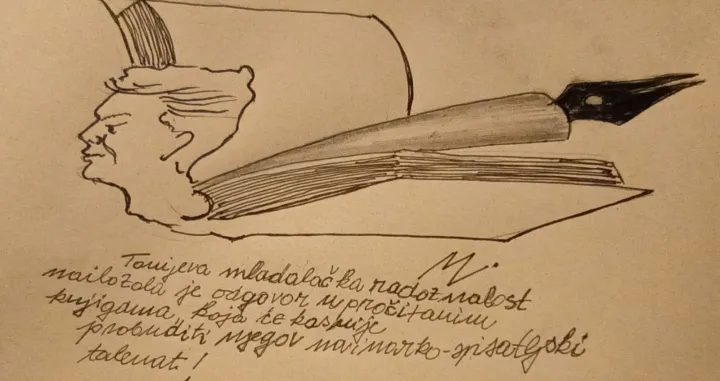 M.
Tonijeva mladalačka radoznalost
nailazila je odgovor u pročitanim
knjigama, koja će kasnije
probuditi njegov novinarko-spisateljski
talenat!